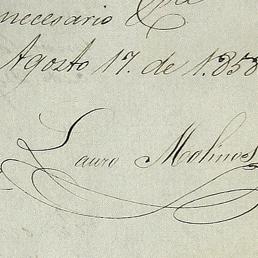 necesario
Agosto 17. de 1.858
Lauro Molinos